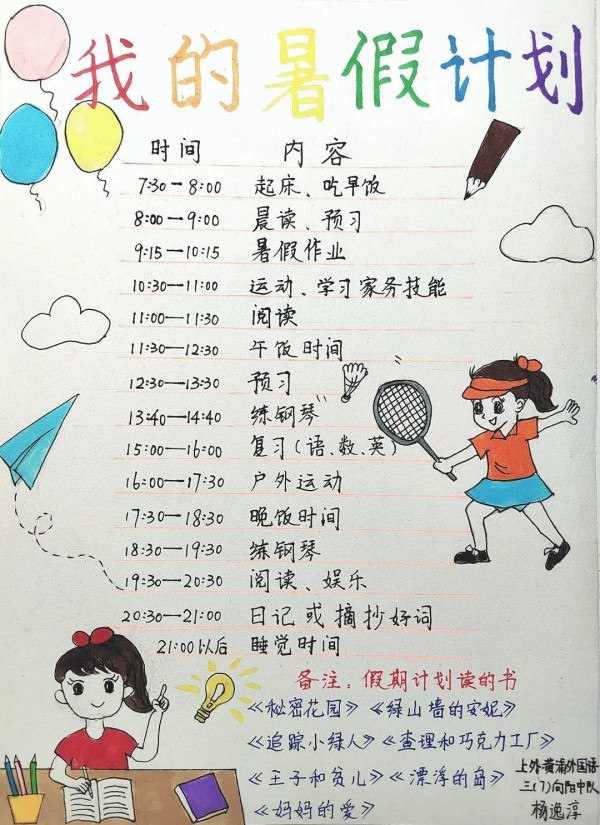 我的暑假计划
时间 内容
7:30—8:00 起床、吃早饭
8:00—9:00 晨读、预习
9:15—10:15 暑假作业
10:30—11:00 运动、学习家务技能
11:00—11:30 阅读
11:30—12:30 午饭时间
12:30—13:30 预习
13:40—14:40 练钢琴
15:00—16:00 复习(语、数、英)
16:00—17:30 户外运动
17:30—18:30 晚饭时间
18:30—19:30 练钢琴
19:30—20:30 阅读、娱乐
20:30—21:00 日记或摘抄好词
21:00以后 睡觉时间
备注:假期计划读的书
《秘密花园》《绿山墙的安妮》
《追踪小绿人》《查理和巧克力工厂》
《王子和贫儿》《漂浮的岛》
《妈妈的爱》
上外黄浦外国语
三(7)向阳中队
杨逸淳